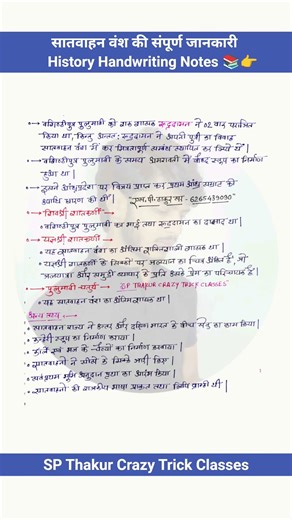 सातवाहन वंश की संपूर्ण जानकारी
History Handwriting Notes 📚👉
→ वशिष्ठीपुत्र पुलुमावी को शक शासक रूद्रदामन ने 02 बार पराजित
किया था, किन्तु अन्ततः रूद्रदामन ने अपनी पुत्री का विवाह
सातवाहन वंश में कर मित्रतापूर्ण सम्बन्ध स्थापित कर लिये थे
→ वशिष्ठीपुत्र पुलुमावी के समय अमरावती में बौद्ध स्तूप का निर्माण
हुआ था |
→ इसने आंध्रप्रदेश पर विजय प्राप्त कर प्रथम आंध्र सम्राट की
उपाधि धारण की थी | एस.पी. ठाकुर सर - 6265439090
→ शिवश्री शातकर्णी
→ वशिष्ठीपुत्र पुलुमावी का भाई तथा रूद्रदामन का दामाद था |
→ यज्ञश्री शातकर्णी
→ यह सातवाहन वंश का अंतिम शक्तिशाली शासक था |
→ यज्ञश्री शातकर्णी के सिक्कों पर जलयान का चित्र अंकित है, जो
जलयात्रा और समुद्री व्यापार के प्रति उनके प्रेम का परिचायक है |
→ पुलुमावी - चतुर्थ SP THAKUR CRAZY TRICK CLASSES
→ यह सातवाहन वंश का अंतिम शासक था |
अन्य तथ्य :-
→ सातवाहन राज्य ने उत्तर और दक्षिण भारत के बीच सेतु का काम किया |
→ स्तूप का निर्माण कराया |
→ के चैत्यों का निर्माण करवाया |
→ सातवाहनों ने सीसे के सिक्के जारी किए |
→ सर्वप्रथम भूमि अनुदान प्रथा का आरंभ किया |
→ सातवाहनों की राजकीय भाषा प्राकृत तथा लिपि ब्राह्मी थी |
SP Thakur Crazy Trick Classes